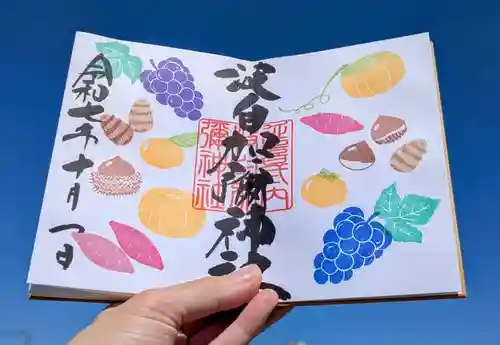 延喜式内
波自加
彌神社
波自加彌神社
令和七年十月